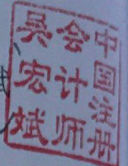 中国注册
会计师
吴宏斌